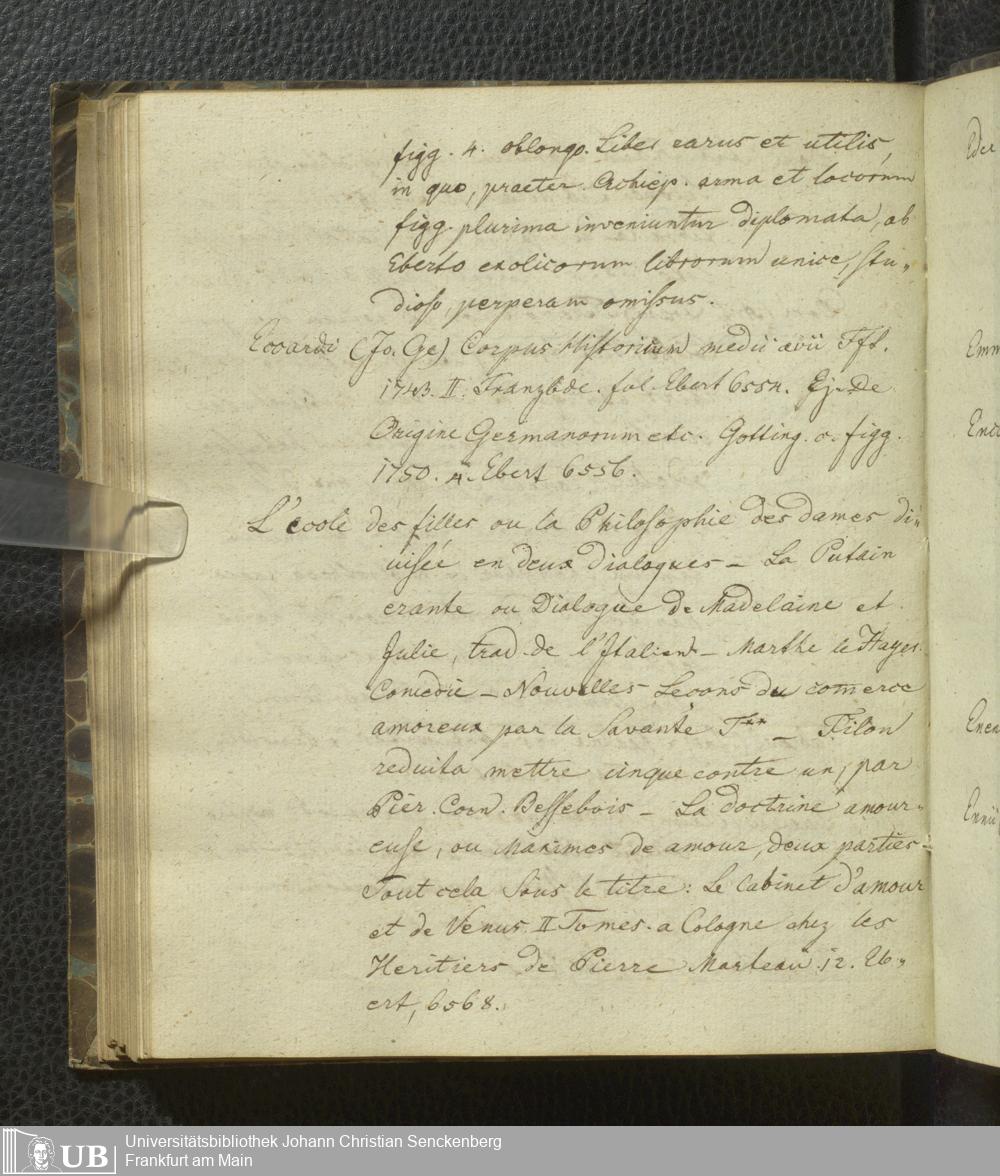 figg. 4. oblongo. Liber rarus et utilis,
in quo, praeter Archiep. arma et locorum
figg. plurima inveniuntur diplomata, ab
Eberto exolicorum librorum unice, stu„
dioso, perperam omissus.
Eccardi (Jo. Ge). Corpus Historicum medii ævii Fft.
1743. II. Franzbde. fol. Ebert 6554. Ej. De
Origine Germanorum etc. Gotting. c. figg.
1750. 4. Ebert 6556.
L'ecole des filles ou la Philosophie des dames di„
visée en deux dialogues – La Putain
erante ou Dialogue de Madelaine et
Julie, trad. de l'Italien – Marthe le Hayer
Comedie – Nouvelles Lecons du comerce
amoreux par la Savante T** – Filon
reduita mettre cinque contre un, par
Pier. Corn. Blessebois – La doctrine amour„
euse, ou Maximes de amour, deux parties –
Tout cela sous le titre: Le Cabinet d'amour
et de Venus. II Tomes. a Cologne chez les
Heritiers de Pierre Marteau. 12. Eb„
ert, 6568.
Emm
Enc
Enniï
UB
Universitätsbibliothek Johann Christian Senckenberg
Frankfurt am Main